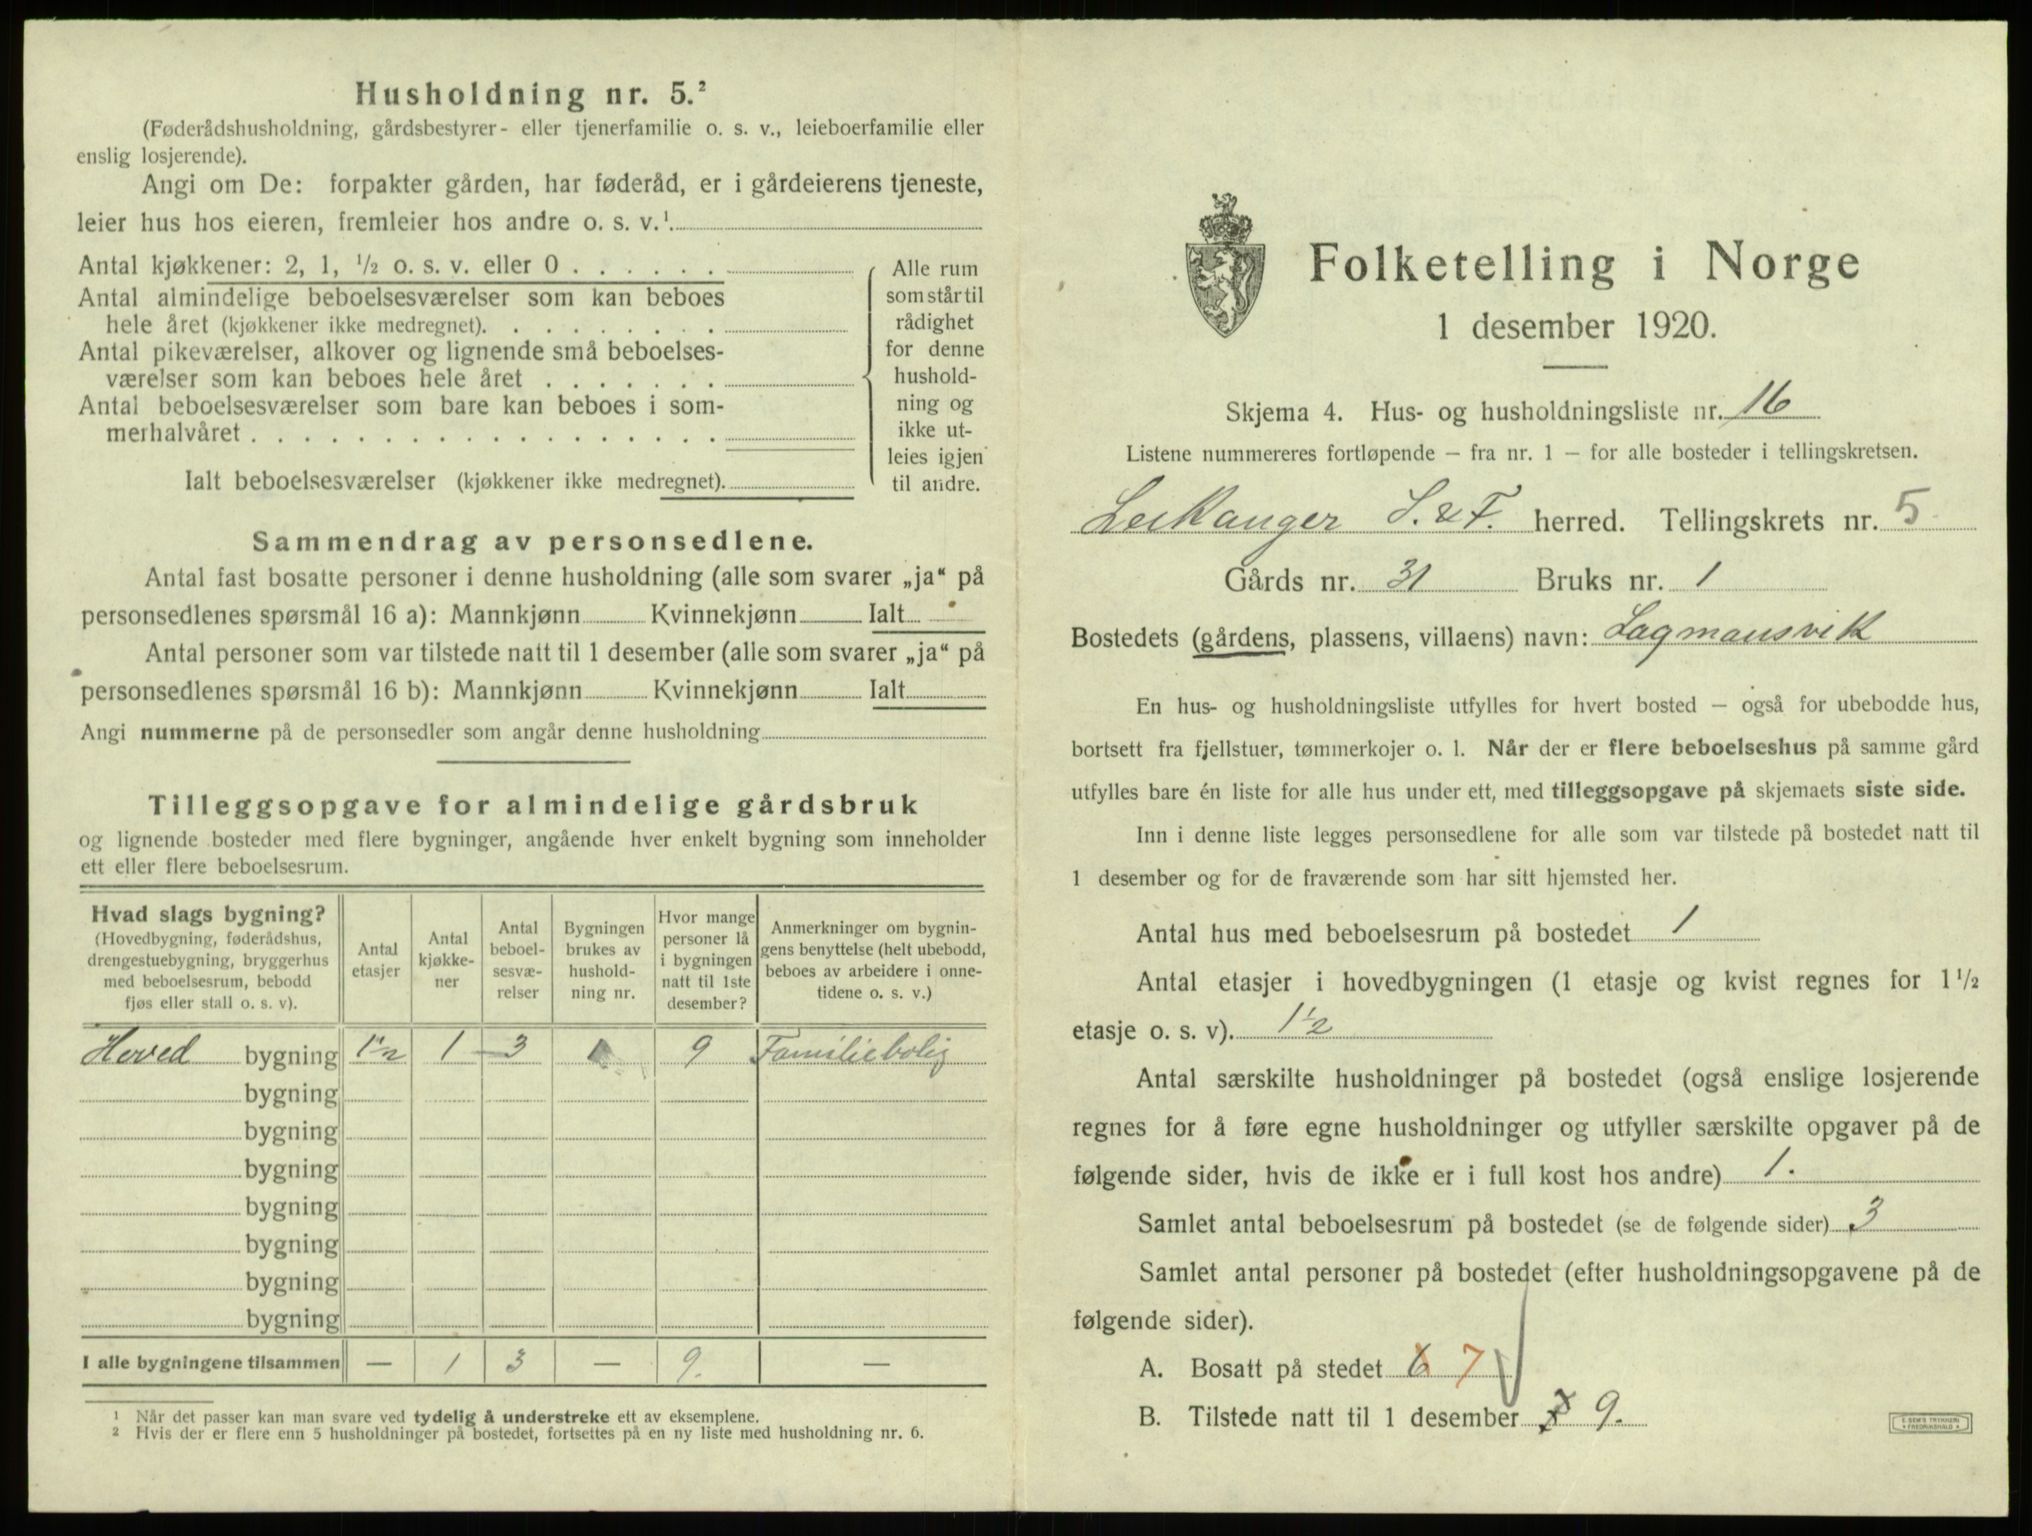 Husholdning nr. 5.²
(Føderådshusholdning, gårdsbestyrer- eller tjenerfamilie o. s. v., leieboerfamilie eller
enslig losjerende).
Angi om De: forpakter gården, har føderåd, er i gårdeierens tjeneste,
leier hus hos eieren, fremleier hos andre o. s. v.¹
Antal kjøkkener: 2, 1, ½ o. s. v. eller 0
Antal almindelige beboelsesværelser som kan beboes
hele året (kjøkkener ikke medregnet).
Antal pikeværelser, alkover og lignende små beboelses-
værelser som kan beboes hele året
Antal beboelsesværelser som bare kan beboes i som-
merhalvåret
Ialt beboelsesværelser (kjøkkener ikke medregnet).
Alle rum
som står til
rådighet
for denne
hushold-
ning og
ikke ut-
leies igjen
til andre.
Sammendrag av personsedlene.
Antal fast bosatte personer i denne husholdning (alle som svarer „ja“ på
personsedlenes spørsmål 16 a): Mannkjønn Kvinnekjønn Ialt
Antal personer som var tilstede natt til 1 desember (alle som svarer „ja“ på
personsedlenes spørsmål 16 b): Mannkjønn Kvinnekjønn Ialt
Angi nummerne på de personsedler som angår denne husholdning
Tilleggsopgave for almindelige gårdsbruk
og lignende bosteder med flere bygninger, angående hver enkelt bygning som inneholder
ett eller flere beboelsesrum.
Hvad slags bygning?
(Hovedbygning, føderådshus,
drengestuebygning, bryggerhus
med beboelsesrum, bebodd
fjøs eller stall o. s. v).
Antal
etasjer
Antal
kjøkke-
ner
Antal
beboel-
sesvæ-
relser
Bygningen
brukes av
hushold-
ning nr.
Hvor mange
personer lå
i bygningen
natt til 1ste
desember?
Anmerkninger om bygnin-
gens benyttelse (helt ubebodd,
beboes av arbeidere i onne-
tidene o. s. v.)
Hoved bygning 1½ 1 3 1 9 Familiebolig
bygning
bygning
bygning
bygning
bygning
bygning
bygning
I alle bygningene tilsammen — 1 3 — 9. —
¹ Når det passer kan man svare ved tydelig å understreke ett av eksemplene.
² Hvis der er flere enn 5 husholdninger på bostedet, fortsettes på en ny liste med husholdning nr. 6.
Folketelling i Norge
1 desember 1920.
Skjema 4. Hus- og husholdningsliste nr. 16
Listene nummereres fortløpende – fra nr. 1 – for alle bosteder i tellingskretsen.
Leikanger S. & F. herred. Tellingskrets nr. 5
Gårds nr. 31 Bruks nr. 1
Bostedets (gårdens, plassens, villaens) navn: Lagmansvik
En hus- og husholdningsliste utfylles for hvert bosted – også for ubebodde hus,
bortsett fra fjellstuer, tømmerkojer o. l. Når der er flere beboelseshus på samme gård
utfylles bare én liste for alle hus under ett, med tilleggsopgave på skjemaets siste side.
Inn i denne liste legges personsedlene for alle som var tilstede på bostedet natt til
1 desember og for de fraværende som har sitt hjemsted her.
Antal hus med beboelsesrum på bostedet 1
Antal etasjer i hovedbygningen (1 etasje og kvist regnes for 1 ½
etasje o. s. v). 1½
Antal særskilte husholdninger på bostedet (også enslige losjerende
regnes for å føre egne husholdninger og utfyller særskilte opgaver på de
følgende sider, hvis de ikke er i full kost hos andre) 1.
Samlet antal beboelsesrum på bostedet (se de følgende sider) 3
Samlet antal personer på bostedet (efter husholdningsopgavene på de
følgende sider).
A. Bosatt på stedet 6 7
B. Tilstede natt til 1 desember 9.
E. SEM'S TRYKKERI
FREDRIKSHALD